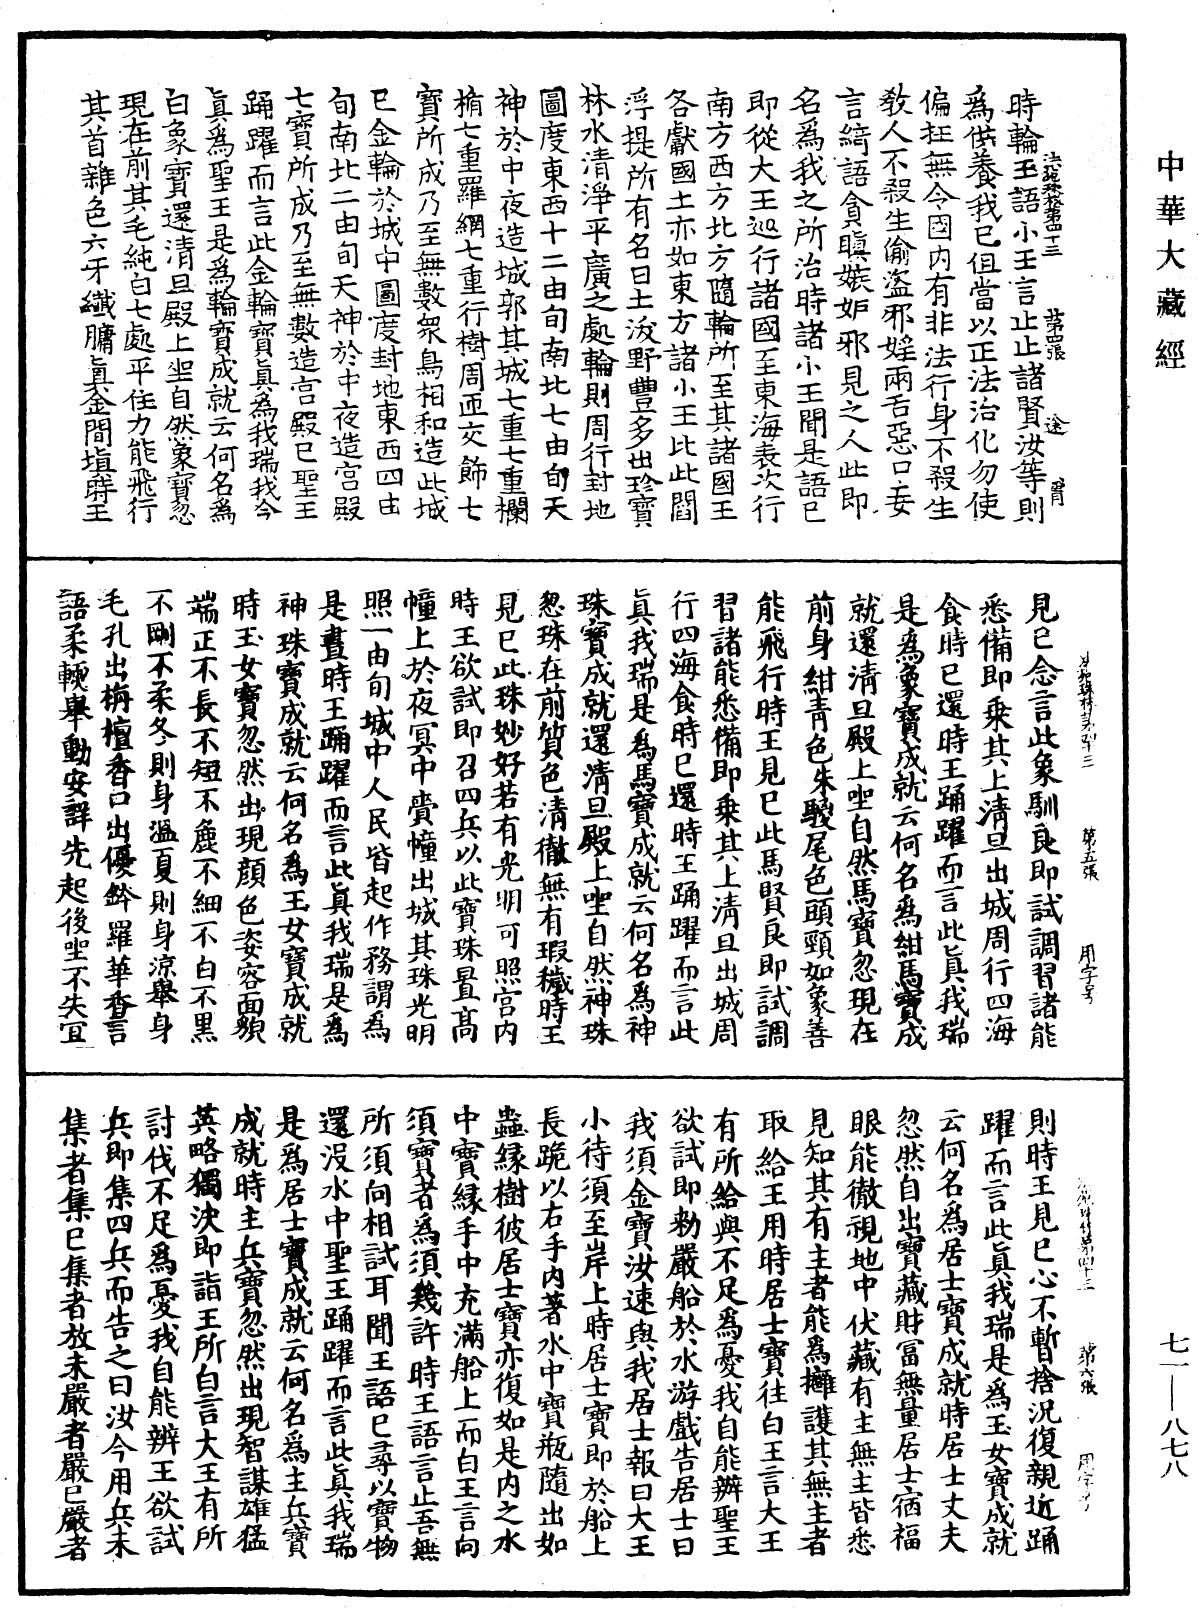 中華大藏經
時輪王語小王言止止諸賢汝等則
法苑珠林第四十三 第四張
爲供養我已但當以正法治化勿使
偏抂無令國内有非法行身不殺生
教人不殺生偷盜邪婬兩舌惡口妄
言綺語貪瞋嫉妬邪見之人此即
名爲我之所治時諸小王聞是語已
即從大王廵行諸國至東海表次行
南方西方北方隨輪所至其諸國王
各獻國土亦如東方諸小王比此閻
浮提所有名曰土沃野豐多出珍寶
林水清淨平廣之處輪則周行封地
圖度東西十二由旬南北七由旬天
神於中夜造城郭其城七重七重欄
楯七重羅網七重行樹周匝交飾七
寶所成乃至無數衆鳥相和造此城
已金輪於城中圖度封地東西四由
旬南北二由旬天神於中夜造宮殿
七寶所成乃至無數造宮殿已聖王
踊躍而言此金輪寶真爲我瑞我今
真爲聖王是爲輪寶成就云何名爲
白象寶還清旦殿上坐自然象寶忽
現在前其毛純白七處平住力能飛行
其首雜色六牙纖𦟛真金間塡時王
見已念言此象馴良即試調習諸能
法苑珠林第四十三 第五張 用字号
悉備即乘其上清旦出城周行四海
食時已還時王踊躍而言此真我瑞
是爲象寶成就云何名爲紺馬寶成
就還清旦殿上坐自然馬寶忽現在
前身紺青色朱騣尾色頭頸如象善
能飛行時王見已此馬賢良即試調
習諸能悉備即乘其上清旦出城周
行四海食時已還時王踊躍而言此
真我瑞是爲馬寶成就云何名爲神
珠寶成就還清旦殿上坐自然神珠
忽珠在前質色清徹無有瑕穢時王
見已此珠妙好若有光明可照宮内
時王欲試即召四兵以此寶珠置高
幢上於夜冥中賷幢出城其珠光明
照一由旬城中人民皆起作務謂爲
是晝時王踊躍而言此真我瑞是爲
神珠寶成就云何名爲玉女寶成就
時玉女寶忽然出現顔色姿容面貌
端正不長不短不麁不細不白不黑
不剛不柔冬則身溫夏則身涼舉身
毛孔出栴檀香口出優鉢羅華香言
語柔軟舉動安詳先起後坐不失宜
則時王見已心不暫捨況復親近踊
法苑珠林第四十三 第六張 用字号
躍而言此真我瑞是爲玉女寶成就
云何名爲居士寶成就時居士丈夫
忽然自出寶藏財冨無量居士宿福
眼能徹視地中伏藏有主無主皆悉
見知其有主者能爲擁護其無主者
取給王用時居士寶往白王言大王
有所給與不足爲憂我自能辦聖王
欲試即勅嚴船於水游戲告居士曰
我須金寶汝速與我居士報曰大王
小待須至岸上時居士寶即於船上
長跪以右手内著水中寶瓶隨出如
蟲緣樹彼居士寶亦復如是内之水
中寶緣手中充滿船上而白王言向
須寶者爲須幾許時王語言止吾無
所須向相試耳聞王語已尋以寶物
還沒水中聖王踊躍而言此真我瑞
是爲居士寶成就云何名爲主兵寶
成就時主兵寶忽然出現智謀雄猛
英略獨決即詣王所白言大王有所
討伐不足爲憂我自能辨王欲試
兵即集四兵而告之曰汝今用兵未
集者集已集者放未嚴者嚴已嚴者
七一—八七八